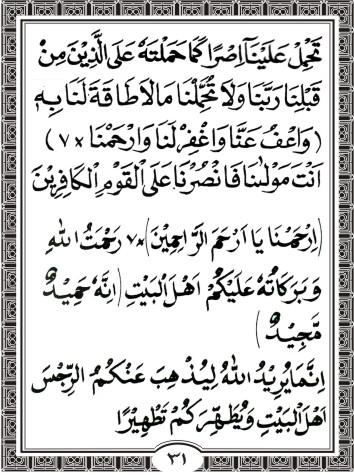 تَحْمِلْ عَلَيْنَآ اِصْرًا كَمَا حَمَلْتَهُ عَلَى الَّذِيْنَ مِنْ
قَبْلِنَا رَبَّنَا وَلَا تُحَمِّلْنَا مَا لَا طَاقَةَ لَنَا بِهِ
(وَاعْفُ عَنَّا وَاغْفِرْ لَنَا وَارْحَمْنَا ×٧)
اَنْتَ مَوْلٰىنَا فَانْصُرْنَا عَلَى الْقَوْمِ الْكَافِرِيْنَ
(اِرْحَمْنَا يَا اَرْحَمَ الرَّاحِمِيْنَ)×٧ رَحْمَتُ اللهِ
وَبَرَكَاتُهُ عَلَيْكُمْ اَهْلَ الْبَيْتِ (اِنَّهُ حَمِيْدٌ
مَّجِيْدٌ)
اِنَّمَا يُرِيْدُ اللهُ لِيُذْهِبَ عَنْكُمُ الرِّجْسَ
اَهْلَ الْبَيْتِ وَيُطَهِّرَكُمْ تَطْهِيْرًا
٣١